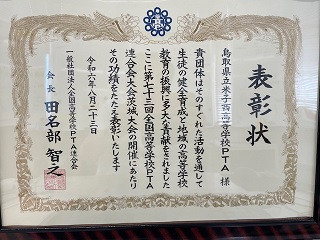 表彰状
鳥取県立米子高等学校PTA 様
貴団体はそのすぐれた活動を通して
生徒の健全育成と地域の高等学校
教育の振興に多大な貢献をされました
ここに第七十三回全国高等学校PTA
連合会大会茨城大会の開催にあたり
その功績をたたえ表彰いたします
令和六年八月二十三日
一般社団法人全国高等学校PTA連合会
会長 田名部 智之